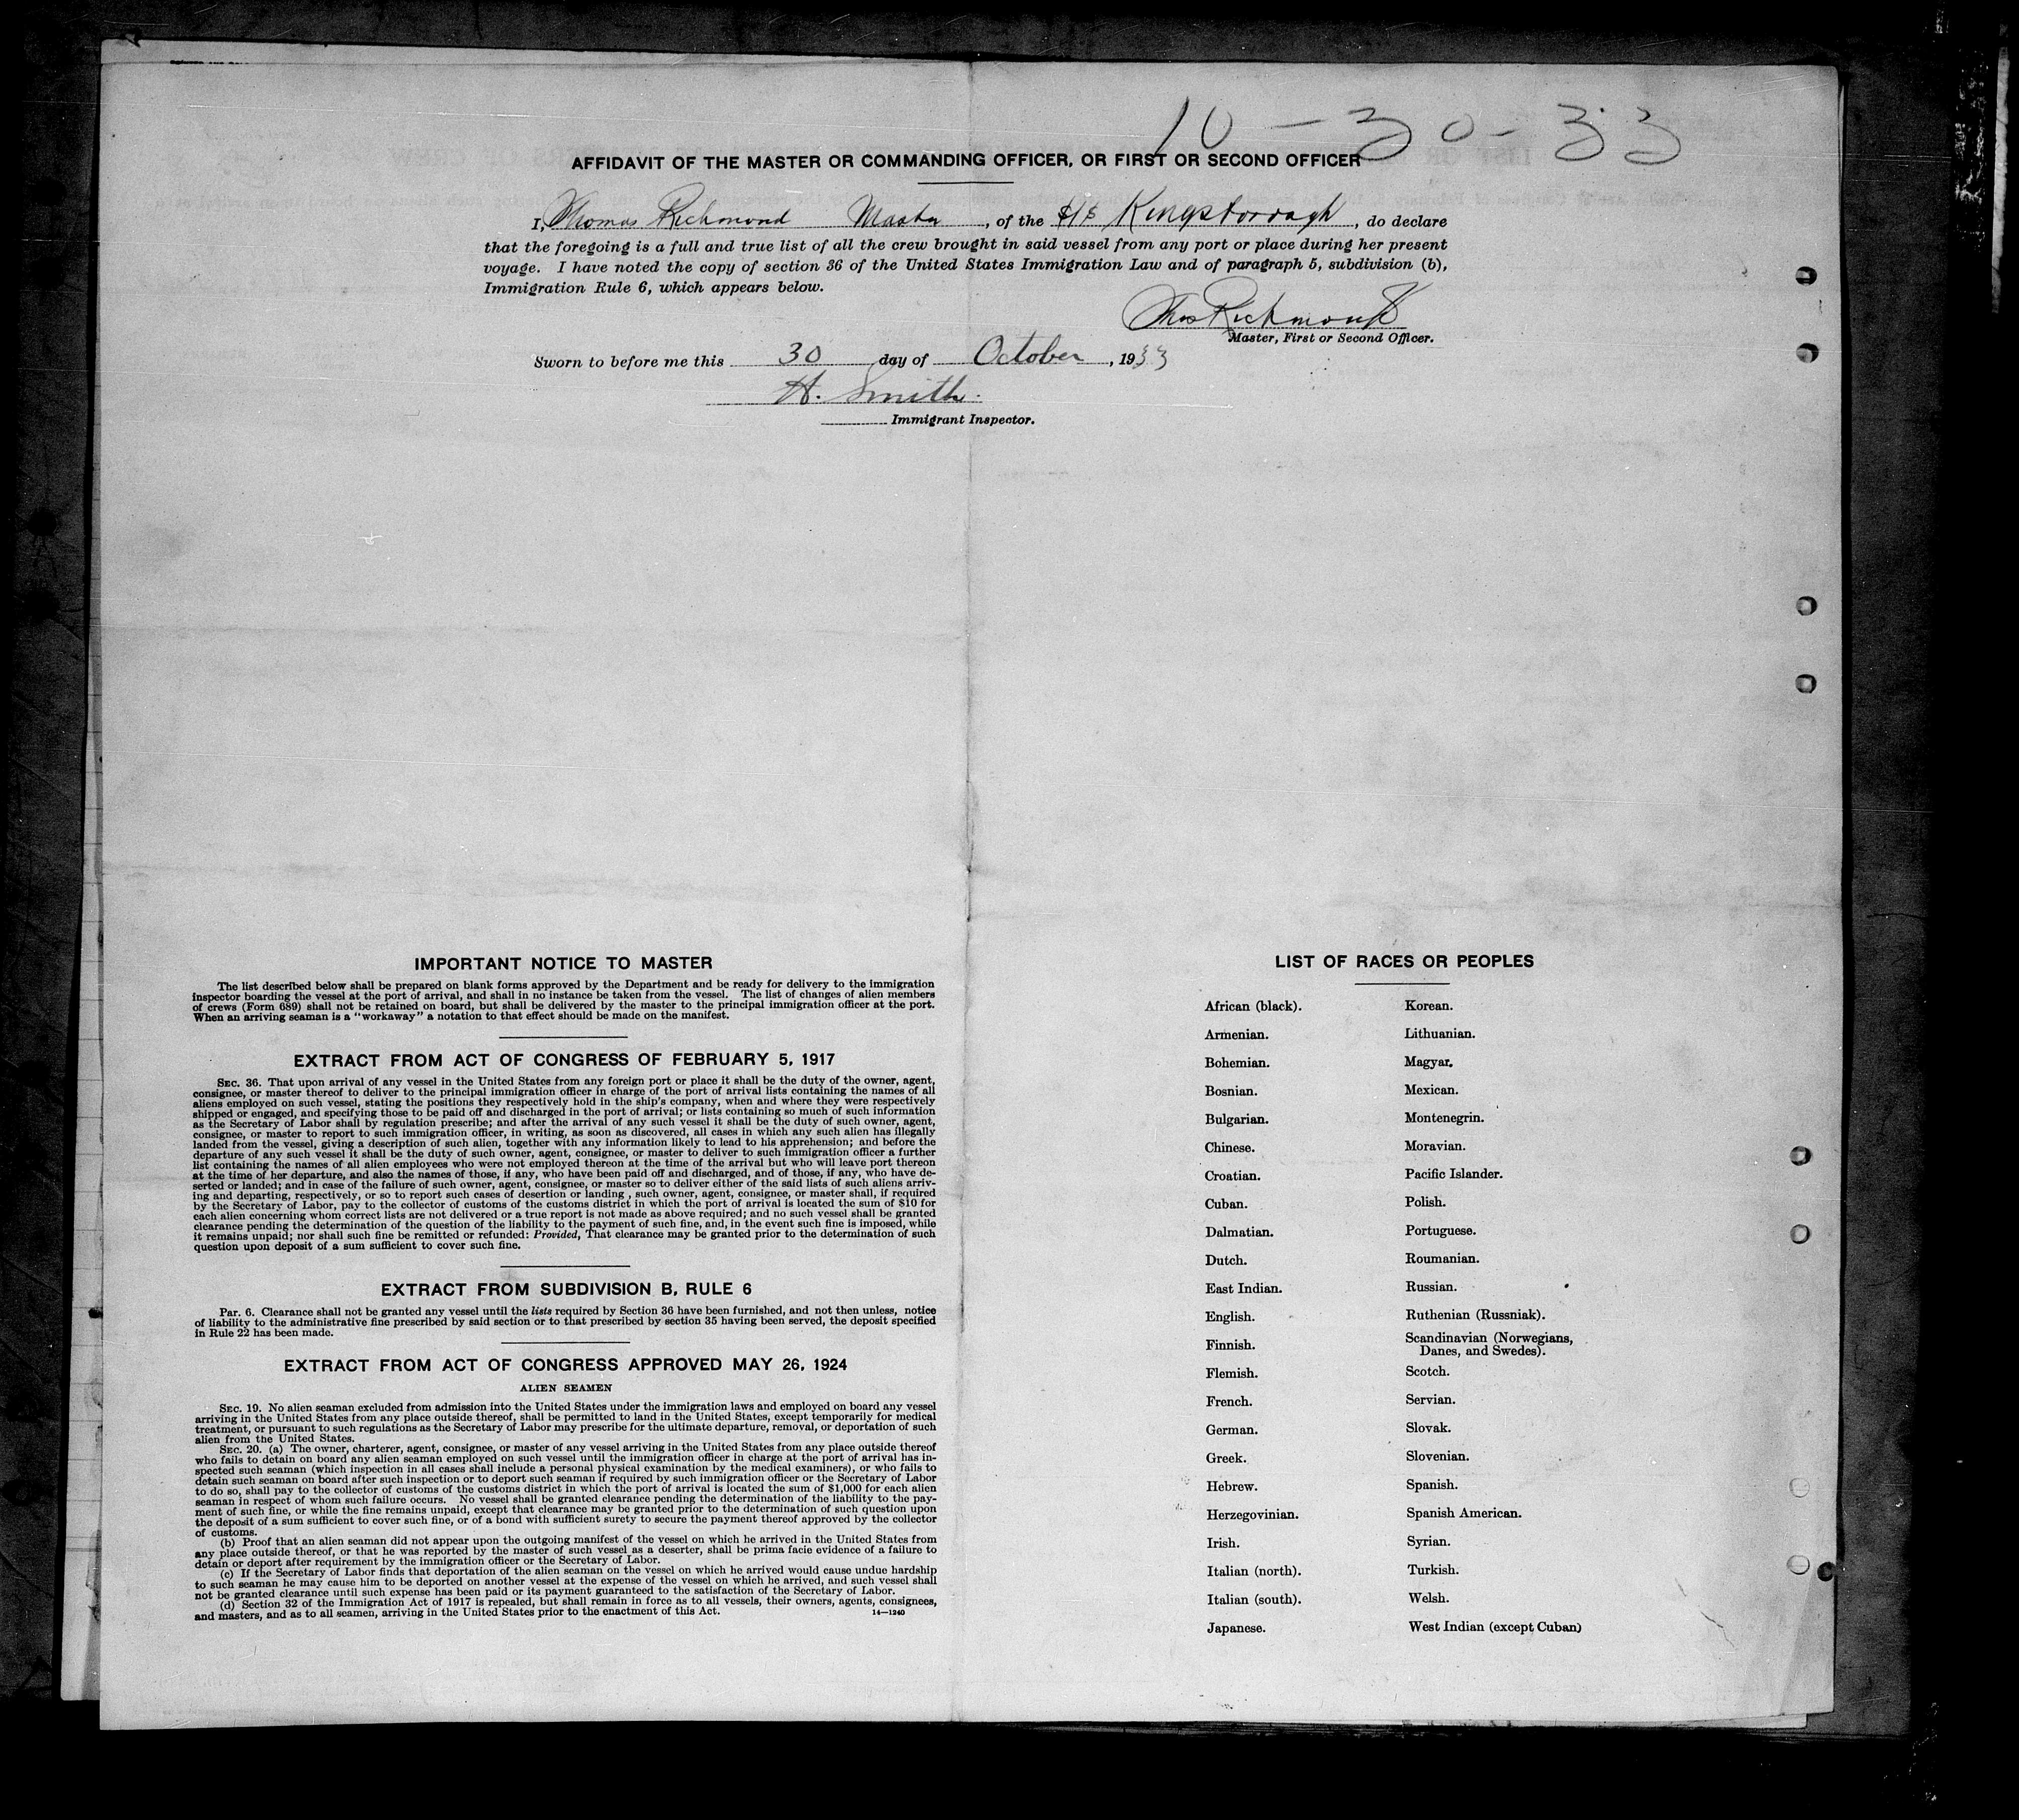 10-30-33
AFFIDAVIT OF THE MASTER OR COMMANDING OFFICER, OR FIRST OR SECOND OFFICER
I, Thomas Richmond Master, of the S/S Kingsborough, do declare
that the foregoing is a full and true list of all the crew brought in said vessel from any port or place during her present
voyage. I have noted the copy of section 36 of the United States Immigration Law and of paragraph 5, subdivision (b),
Immigration Rule 6, which appears below.
Thos Richmond
Master, First or Second Officer.
Sworn to before me this 30 day of October, 1933
H. Smith.
Immigrant Inspector.
IMPORTANT NOTICE TO MASTER
The list described below shall be prepared on blank forms approved by the Department and be ready for delivery to the immigration
inspector boarding the vessel at the port of arrival, and shall in no instance be taken from the vessel. The list of changes of alien members
of crews (Form 689) shall not be retained on board, but shall be delivered by the master to the principal immigration officer at the port.
When an arriving seaman is a "workaway" a notation to that effect should be made on the manifest.
EXTRACT FROM ACT OF CONGRESS OF FEBRUARY 5, 1917
SEC. 36. That upon arrival of any vessel in the United States from any foreign port or place it shall be the duty of the owner, agent,
consignee, or master thereof to deliver to the principal immigration officer in charge of the port of arrival lists containing the names of all
aliens employed on such vessel, stating the positions they respectively hold in the ship's company, when and where they were respectively
shipped or engaged, and specifying those to be paid off and discharged in the port of arrival; or lists containing so much of such information
as the Secretary of Labor shall by regulation prescribe; and after the arrival of any such vessel it shall be the duty of such owner, agent,
consignee, or master to report to such immigration officer, in writing, as soon as discovered, all cases in which any such alien has illegally
landed from the vessel, giving a description of such alien, together with any information likely to lead to his apprehension; and before the
departure of any such vessel it shall be the duty of such owner, agent, consignee, or master to deliver to such immigration officer a further
list containing the names of all alien employees who were not employed thereon at the time of the arrival but who will leave port thereon
at the time of her departure, and also the names of those, if any, who have been paid off and discharged, and of those, if any, who have de-
serted or landed; and in case of the failure of such owner, agent, consignee, or master so to deliver either of the said lists of such aliens arriv-
ing and departing, respectively, or so to report such cases of desertion or landing , such owner, agent, consignee, or master shall, if required
by the Secretary of Labor, pay to the collector of customs of the customs district in which the port of arrival is located the sum of $10 for
each alien concerning whom correct lists are not delivered or a true report is not made as above required; and no such vessel shall be granted
clearance pending the determination of the question of the liability to the payment of such fine, and, in the event such fine is imposed, while
it remains unpaid; nor shall such fine be remitted or refunded: Provided, That clearance may be granted prior to the determination of such
question upon deposit of a sum sufficient to cover such fine.
EXTRACT FROM SUBDIVISION B, RULE 6
Par. 6. Clearance shall not be granted any vessel until the lists required by Section 36 have been furnished, and not then unless, notice
of liability to the administrative fine prescribed by said section or to that prescribed by section 35 having been served, the deposit specified
in Rule 22 has been made.
EXTRACT FROM ACT OF CONGRESS APPROVED MAY 26, 1924
ALIEN SEAMEN
SEC. 19. No alien seaman excluded from admission into the United States under the immigration laws and employed on board any vessel
arriving in the United States from any place outside thereof, shall be permitted to land in the United States, except temporarily for medical
treatment, or pursuant to such regulations as the Secretary of Labor may prescribe for the ultimate departure, removal, or deportation of such
alien from the United States.
SEC. 20. (a) The owner, charterer, agent, consignee, or master of any vessel arriving in the United States from any place outside thereof
who fails to detain on board any alien seaman employed on such vessel until the immigration officer in charge at the port of arrival has in-
spected such seaman (which inspection in all cases shall include a personal physical examination by the medical examiners), or who fails to
detain such seaman on board after such inspection or to deport such seaman if required by such immigration officer or the Secretary of Labor
to do so, shall pay to the collector of customs of the customs district in which the port of arrival is located the sum of $1,000 for each alien
seaman in respect of whom such failure occurs. No vessel shall be granted clearance pending the determination of the liability to the pay-
ment of such fine, or while the fine remains unpaid, except that clearance may be granted prior to the determination of such question upon
the deposit of a sum sufficient to cover such fine, or of a bond with sufficient surety to secure the payment thereof approved by the collector
of customs.
(b) Proof that an alien seaman did not appear upon the outgoing manifest of the vessel on which he arrived in the United States from
any place outside thereof, or that he was reported by the master of such vessel as a deserter, shall be prima facie evidence of a failure to
detain or deport after requirement by the immigration officer or the Secretary of Labor.
(c) If the Secretary of Labor finds that deportation of the alien seaman on the vessel on which he arrived would cause undue hardship
to such seaman he may cause him to be deported on another vessel at the expense of the vessel on which he arrived, and such vessel shall
not be granted clearance until such expense has been paid or its payment guaranteed to the satisfaction of the Secretary of Labor.
(d) Section 32 of the Immigration Act of 1917 is repealed, but shall remain in force as to all vessels, their owners, agents, consignees,
and masters, and as to all seamen, arriving in the United States prior to the enactment of this Act. 14—1240
LIST OF RACES OR PEOPLES
African (black).
Armenian.
Bohemian.
Bosnian.
Bulgarian.
Chinese.
Croatian.
Cuban.
Dalmatian.
Dutch.
East Indian.
English.
Finnish.
Flemish.
French.
German.
Greek.
Hebrew.
Herzegovinian.
Irish.
Italian (north).
Italian (south).
Japanese.
Korean.
Lithuanian.
Magyar.
Mexican.
Montenegrin.
Moravian.
Pacific Islander.
Polish.
Portuguese.
Roumanian.
Russian.
Ruthenian (Russniak).
Scandinavian (Norwegians,
Danes, and Swedes).
Scotch.
Servian.
Slovak.
Slovenian.
Spanish.
Spanish American.
Syrian.
Turkish.
Welsh.
West Indian (except Cuban)